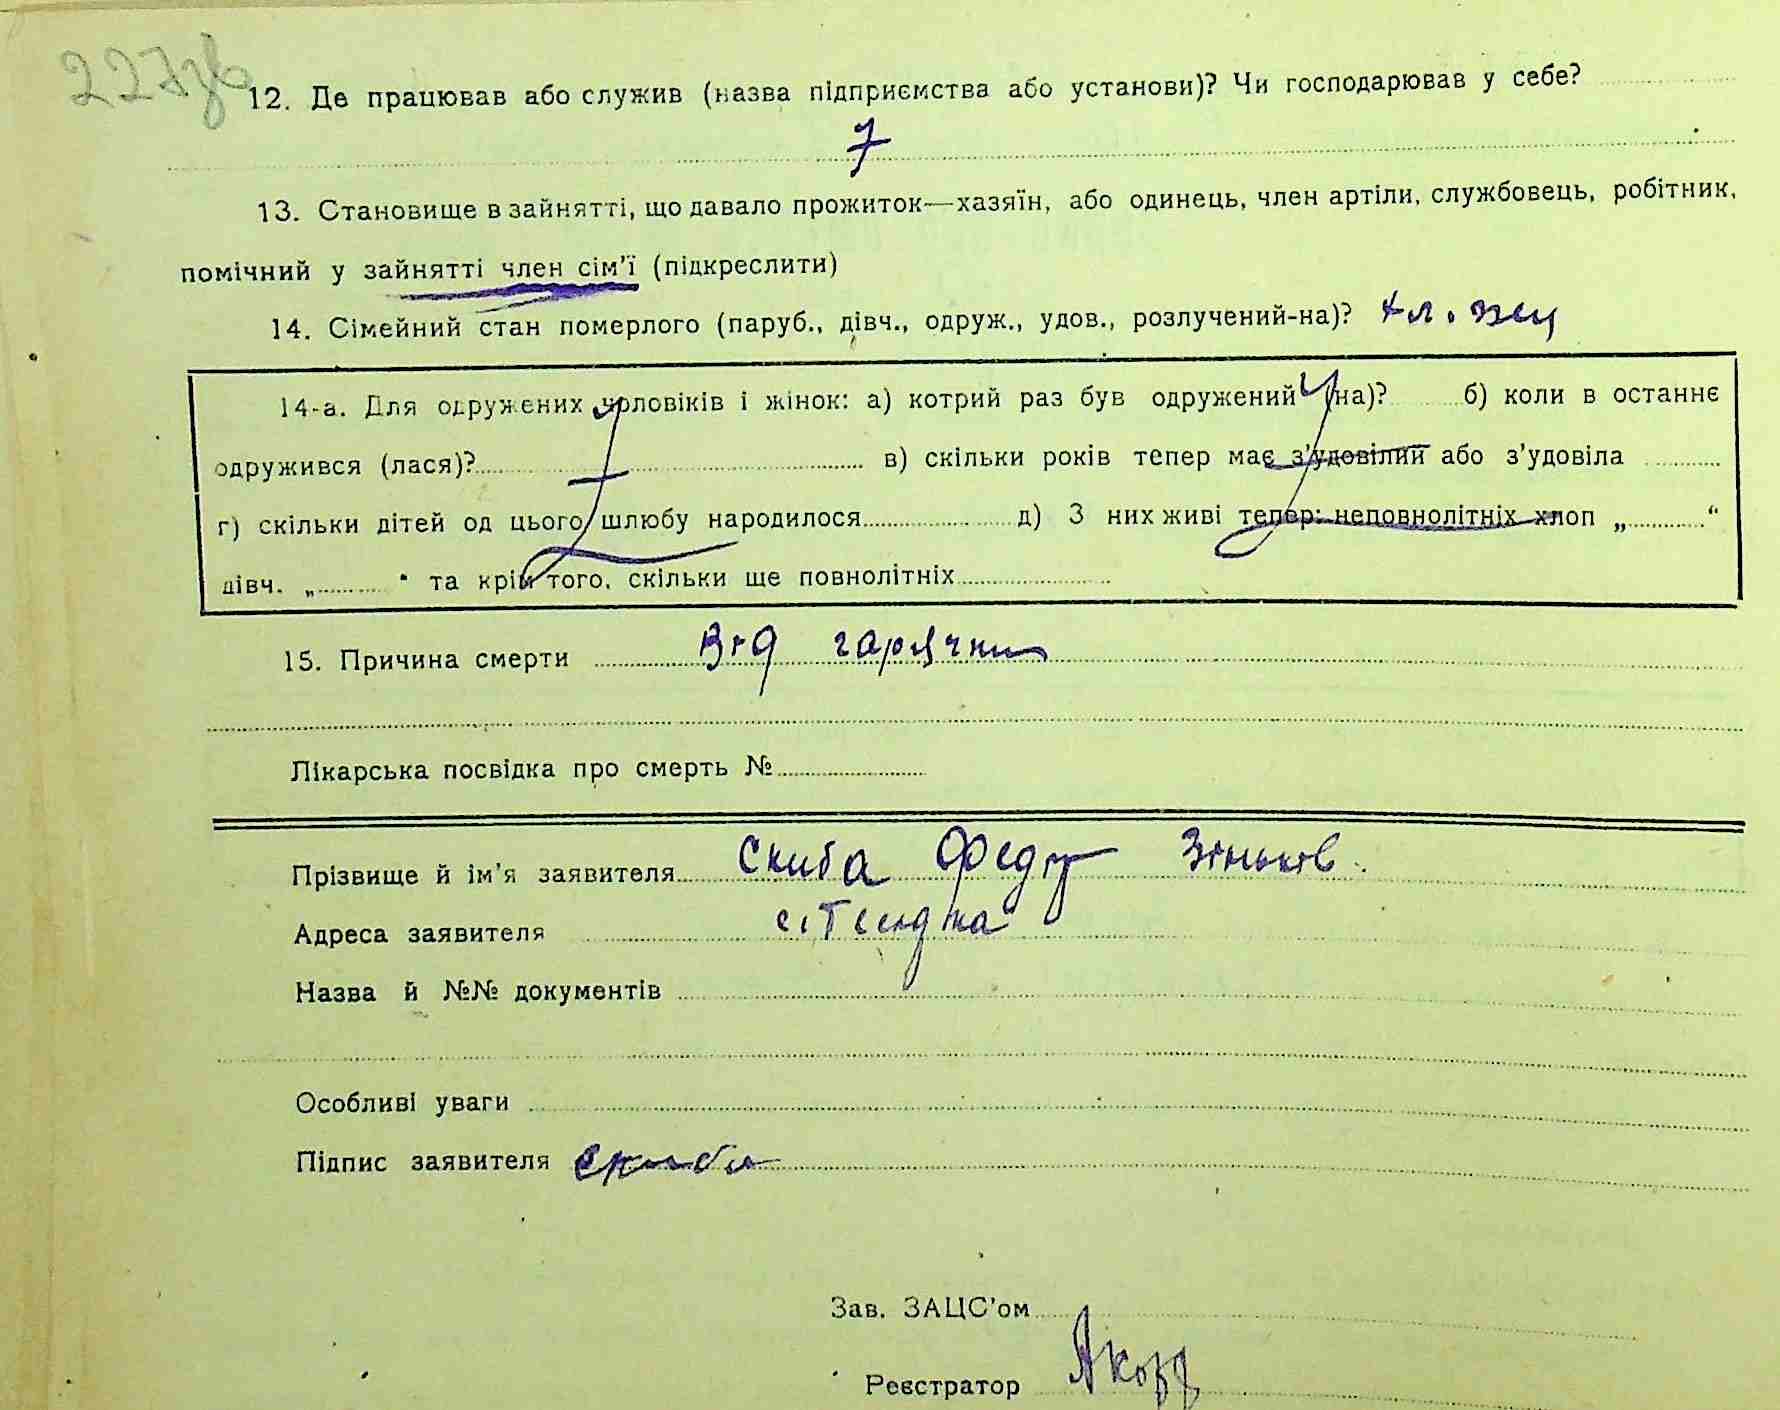 227зв
12. Де працював або служив (назва підприємства або установи)? Чи господарював у себе?
13. Становище в зайнятті, що давало прожиток—хазяїн, або одинець, член артіли, службовець, робітник,
помічний у зайнятті член сім'ї (підкреслити)
14. Сімейний стан померлого (паруб., дівч., одруж., удов., розлучений-на)? хл.
14-а. Для одружених чоловіків і жінок: а) котрий раз був одружений (на)? б) коли в останнє
одружився (лася)? в) скільки років тепер має з'удовілий або з'удовіла
г) скільки дітей од цього шлюбу народилося д) З них живі тепер: неповнолітніх хлоп „ “
дівч. „ “ та крім того, скільки ще повнолітніх
15. Причина смерти Від гарячки
Лікарська посвідка про смерть №
Прізвище й ім'я заявителя Скиба Федір Зіньков.
Адреса заявителя
Назва й №№ документів
Особливі уваги
Підпис заявителя Скиба
Зав. ЗАЦС'ом
Реєстратор